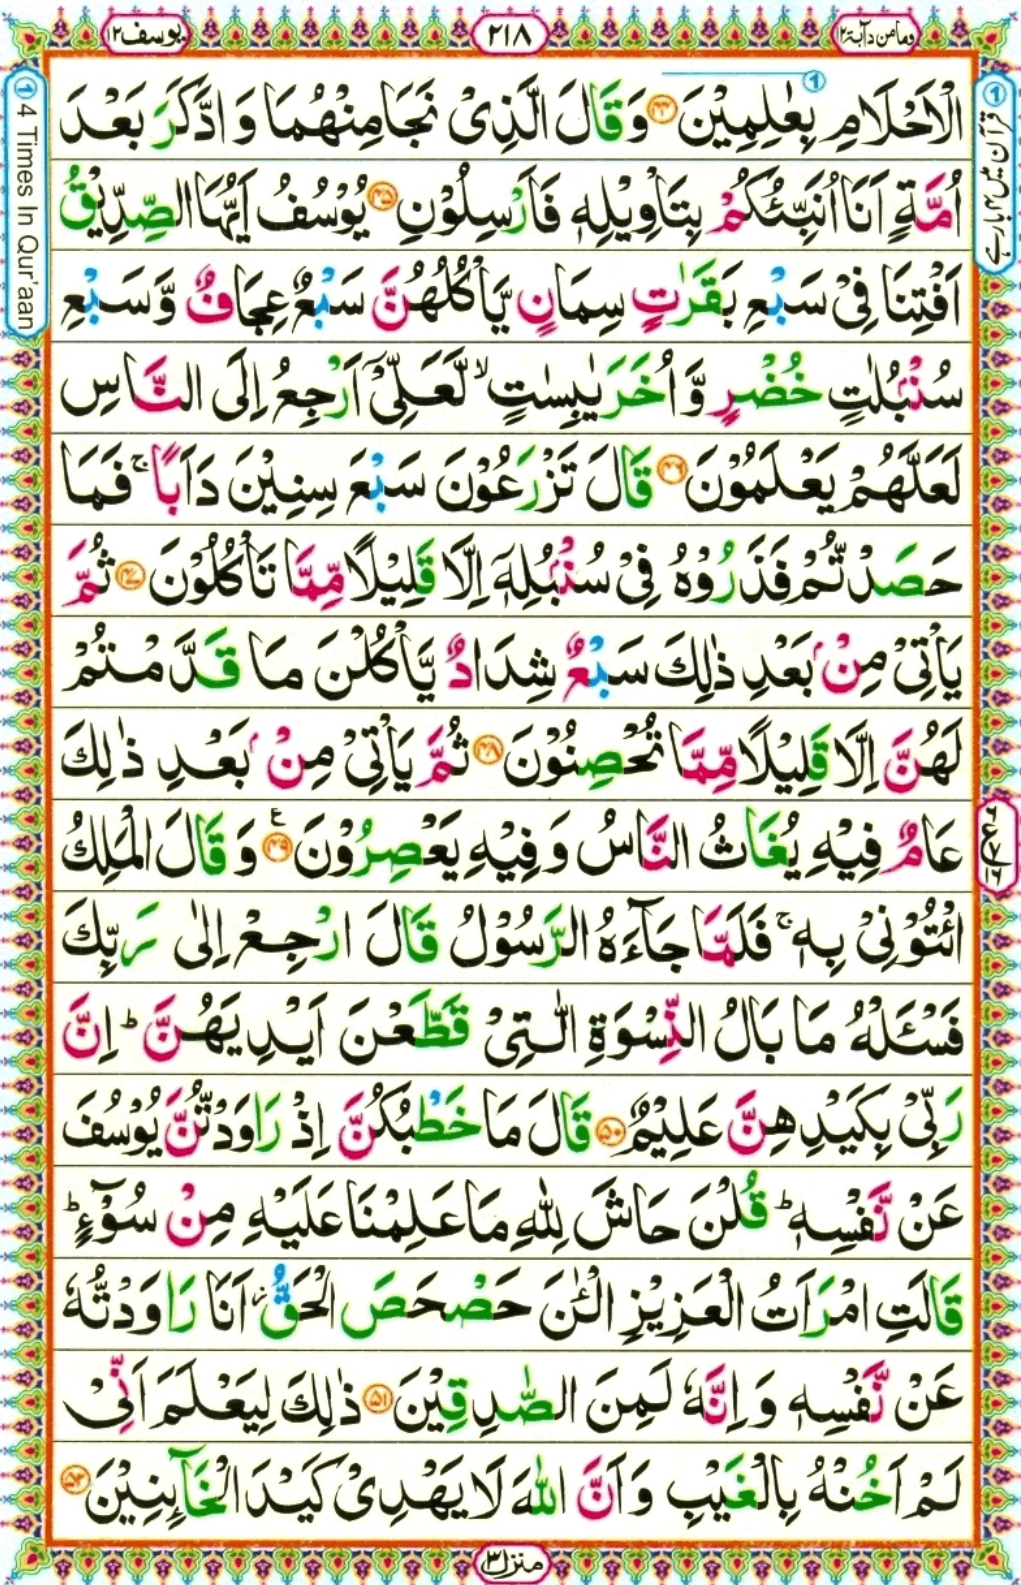 وما من دآبة ١٢
٢١٨
يوسف ١٢
١
قرآن میں ۴ بار ہے
١
4 Times In Qur'aan
١
الْاَحْلَامِ بِعٰلِمِيْنَ ﴿۴۴﴾ وَقَالَ الَّذِىْ نَجَا مِنْهُمَا وَادَّكَرَ بَعْدَ
اُمَّةٍ اَنَا اُنَبِّئُكُمْ بِتَاْوِيْلِهٖ فَاَرْسِلُوْنِ ﴿۴۵﴾ يُوْسُفُ اَيُّهَا الصِّدِّيْقُ
اَفْتِنَا فِىْ سَبْعِ بَقَرٰتٍ سِمَانٍ يَّاْكُلُهُنَّ سَبْعٌ عِجَافٌ وَّسَبْعِ
سُنْۢبُلٰتٍ خُضْرٍ وَّاُخَرَ يٰبِسٰتٍ ۙ لَّعَلِّىْٓ اَرْجِعُ اِلَى النَّاسِ
لَعَلَّهُمْ يَعْلَمُوْنَ ﴿۴۶﴾ قَالَ تَزْرَعُوْنَ سَبْعَ سِنِيْنَ دَاَبًا ۚ فَمَا
حَصَدْتُّمْ فَذَرُوْهُ فِىْ سُنْۢبُلِهٖٓ اِلَّا قَلِيْلًا مِّمَّا تَاْكُلُوْنَ ﴿۴۷﴾ ثُمَّ
يَاْتِىْ مِنْۢ بَعْدِ ذٰلِكَ سَبْعٌ شِدَادٌ يَّاْكُلْنَ مَا قَدَّمْتُمْ
لَهُنَّ اِلَّا قَلِيْلًا مِّمَّا تُحْصِنُوْنَ ﴿۴۸﴾ ثُمَّ يَاْتِىْ مِنْۢ بَعْدِ ذٰلِكَ
عَامٌ فِيْهِ يُغَاثُ النَّاسُ وَفِيْهِ يَعْصِرُوْنَ ﴿۴۹﴾ ع وَقَالَ الْمَلِكُ
ائْتُوْنِىْ بِهٖ ۚ فَلَمَّا جَآءَهُ الرَّسُوْلُ قَالَ ارْجِعْ اِلٰى رَبِّكَ
فَسْـَٔلْهُ مَا بَالُ النِّسْوَةِ الّٰتِىْ قَطَّعْنَ اَيْدِيَهُنَّ ؕ اِنَّ
رَبِّىْ بِكَيْدِهِنَّ عَلِيْمٌ ﴿۵۰﴾ قَالَ مَا خَطْبُكُنَّ اِذْ رَاوَدْتُّنَّ يُوْسُفَ
عَنْ نَّفْسِهٖ ؕ قُلْنَ حَاشَ لِلّٰهِ مَا عَلِمْنَا عَلَيْهِ مِنْ سُوْٓءٍ ؕ
قَالَتِ امْرَاَتُ الْعَزِيْزِ الْـٰٔنَ حَصْحَصَ الْحَقُّ ؗ اَنَا رَاوَدْتُّهٗ
عَنْ نَّفْسِهٖ وَاِنَّهٗ لَمِنَ الصّٰدِقِيْنَ ﴿۵۱﴾ ذٰلِكَ لِيَعْلَمَ اَنِّىْ
لَمْ اَخُنْهُ بِالْغَيْبِ وَاَنَّ اللّٰهَ لَا يَهْدِىْ كَيْدَ الْخَآئِنِيْنَ ﴿۵۲﴾
منزل ٣